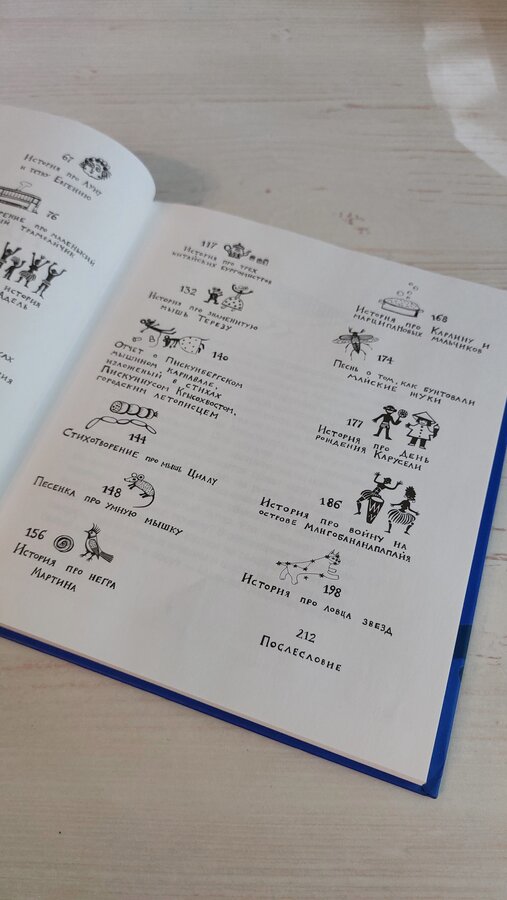 67
История про Луну
и тетю Евгению
76
про маленький
трамвайчик
история
Адель
117
История про трех
китайских бургомистров
132
История про знаменитую
мышь Терезу
140
Отчет о Пискунбергском
мышином карнавале,
изложенный в стихах
Пискуннусом Крысохвостом,
городским летописцем
144
Стихотворение про мышь Циалу
148
Песенка про умную мышку
156
История про негра
Мартина
168
История про Карлину и
марципановых мальчиков
174
Песнь о том, как бунтовали
майские жуки
177
История про День
рождения Карусели
186
История про войну на
острове Мангобананапапайя
198
История про ловца звезд
212
Послесловие